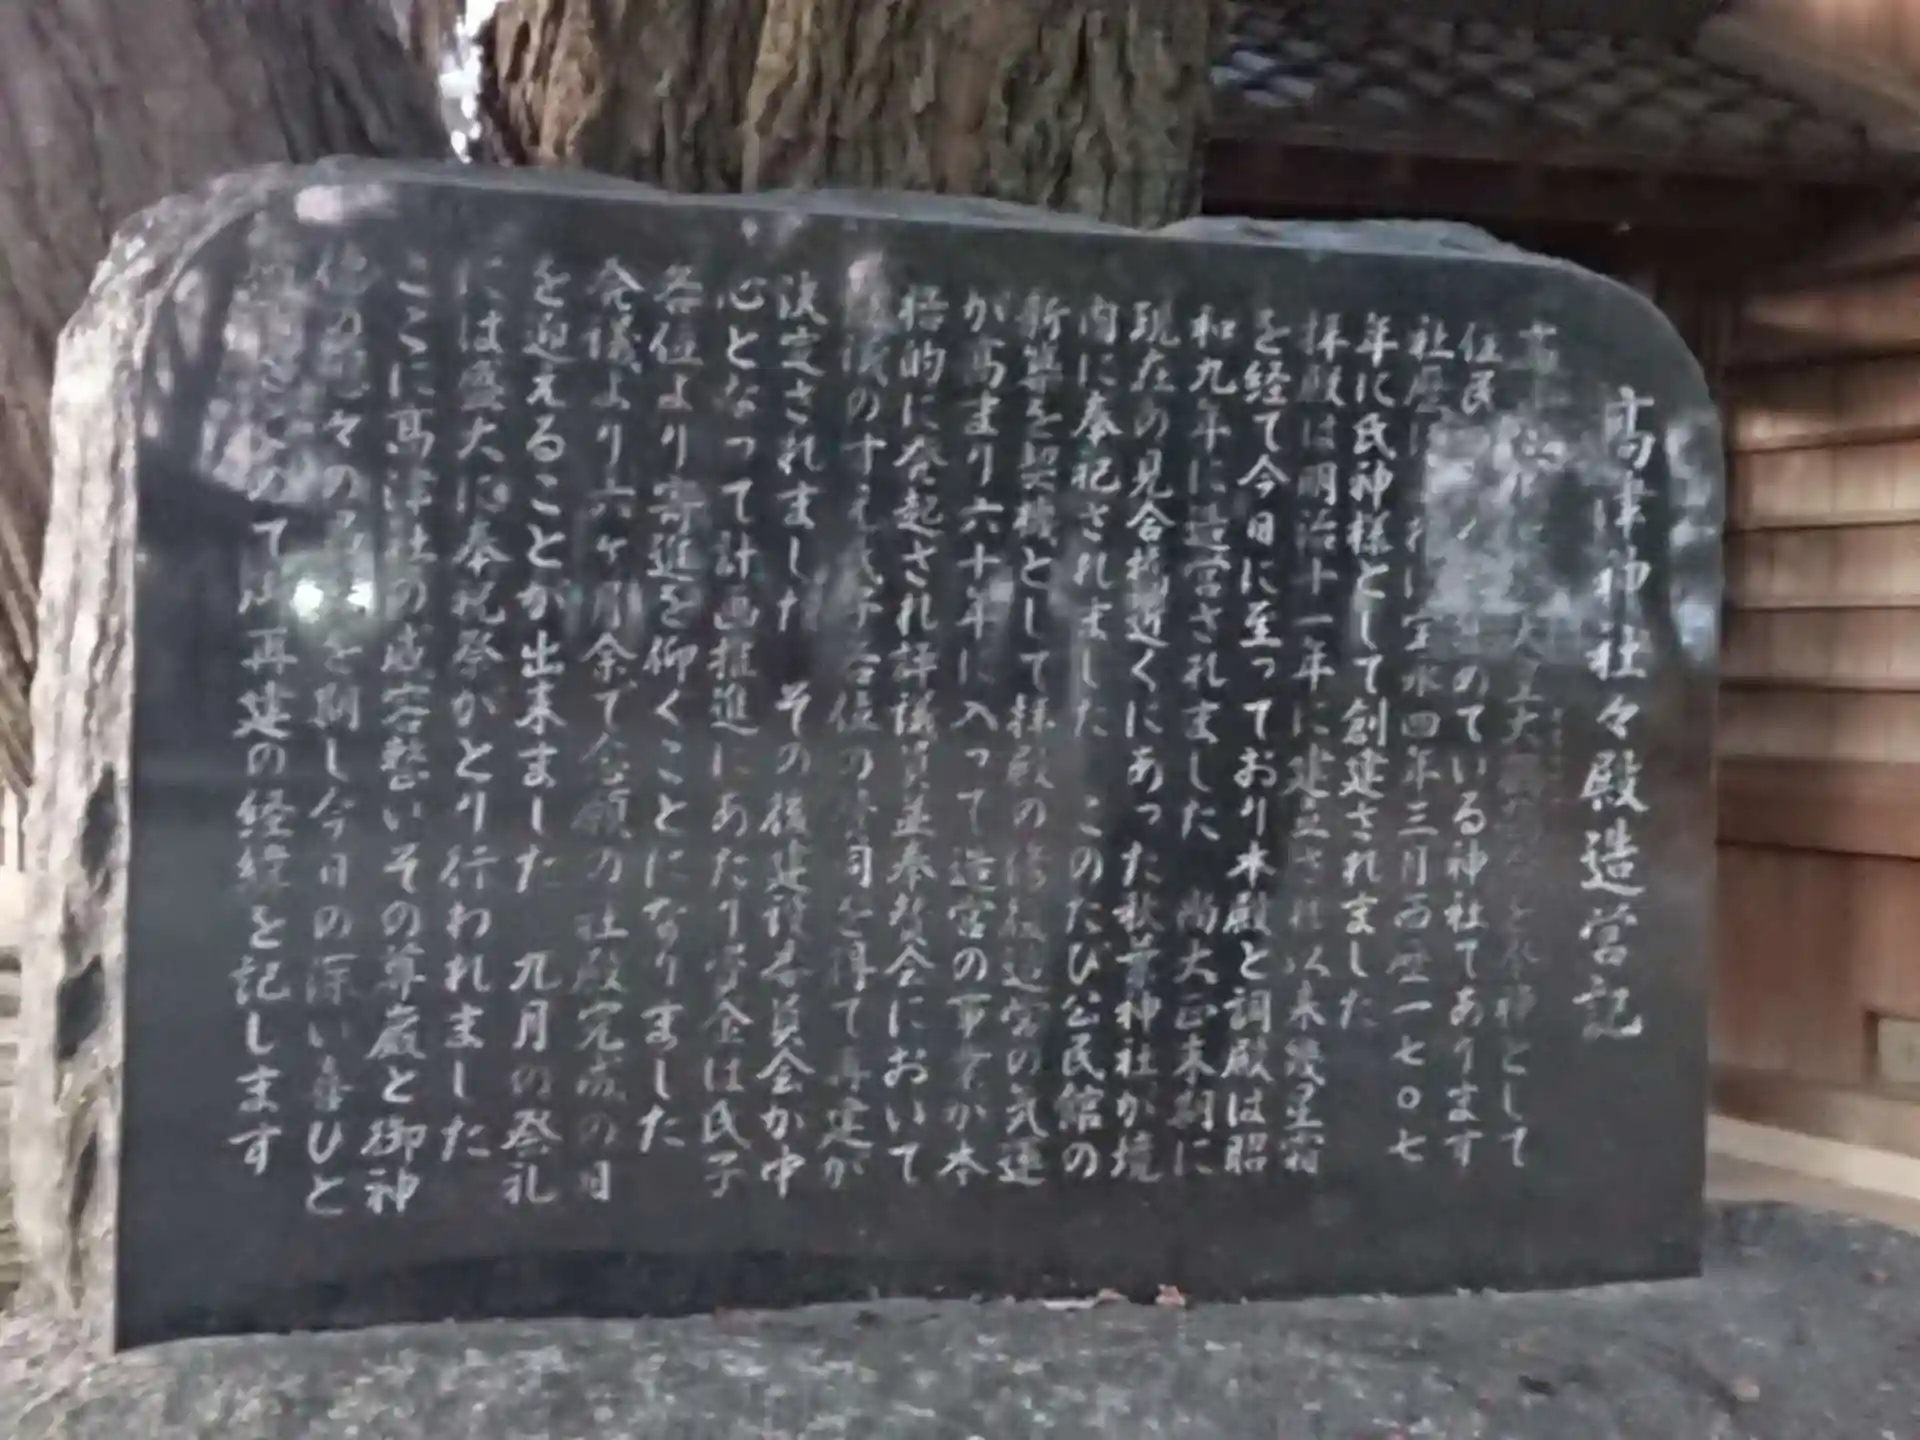 高津神社々殿造営記
大 を祭神として
住民 のている神社てあります
社歴 宝永四年三月西歴一七〇七
年に氏神様として創建されました
拝殿は明治十一年に建立され以来幾星霜
を経て今日に至っており本殿と調殿は昭
和九年に造営されました 尚大正末期に
現在の見合橋近くにあった秋葉神社が境
内に奉祀されました このたび公民館の
新築を契機として拝殿の修復造営の気運
が高まり六十年に入って造営の事業か本
格的に発起され評議員並奉賛会において
のすえ氏子各位の 同を得て再建が
決定されました その後建設委員会か中
心となって計画推進にあたり資金は氏子
各位より寄進を仰くことになりました
発議より六ヶ月余て念願の社殿完成の日
を迎えることが出来ました 九月の祭礼
には盛大に奉祝祭がとり行われました
ここに高津社の威容整いその尊厳と御神
の 々の を期し今日の深い喜ひと
めて 再建の経緯を記します